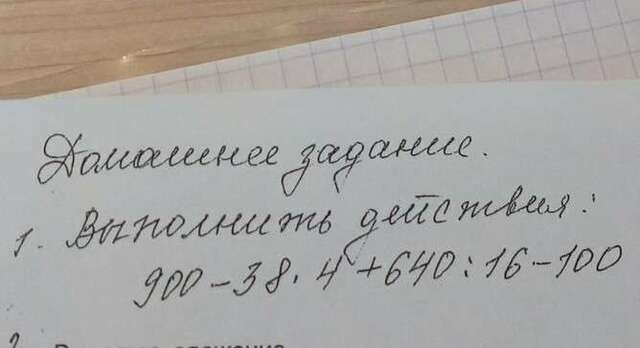 Домашнее задание.
1. Выполнить действия:
900-38·4+640:16-100